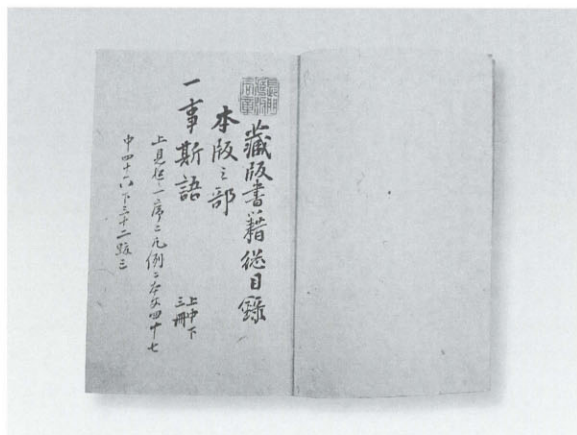 藏版書籍総目錄
本版之部
一事斯語
上中下
三冊
上見返一序二凡例二本文四十七
中四十八下三十二跋三